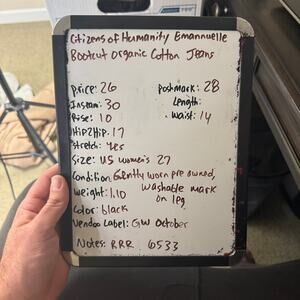 Citizens of Humanity Emannuelle
Bootcut Organic Cotton Jeans
price: 26
Inseam: 30
Rise: 10
Hip2Hip: 17
Stretch: Yes
Size: US women's 27
Condition: Gently worn pre owned,
washable mark
on leg
Weight: 1.10
Color: black
Vendoo Label: GW October
Notes: RRR 6533
poshmark: 28
Length:
Waist: 14